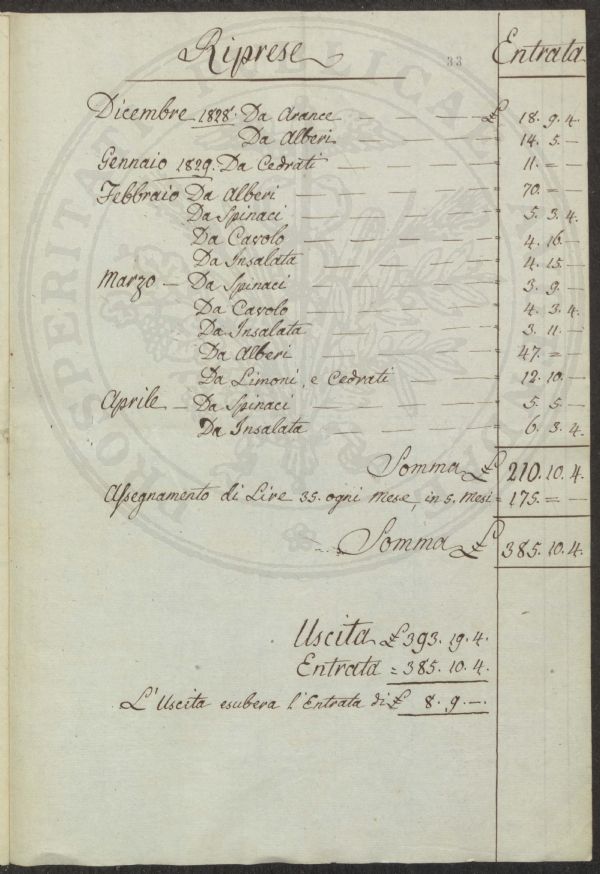 Riprese 33 Entrata
Dicembre 1828. Da Arance — — — £ 18. 9. 4.
Da Alberi — — — 14. 5. —
Gennaio 1829. Da Cedrati — — — = 11. = —
Febbraio Da Alberi — — — = 70. = —
Da Spinaci — — — = 5. 3. 4.
Da Cavolo — — — = 4. 16. —
Da Insalata — — — = 4. 15. —
Marzo — Da Spinaci — — — = 3. 9. —
Da Cavolo — — — = 4. 3. 4.
Da Insalata — — — = 3. 11. —
Da Alberi — — — = 47. = —
Da Limoni, e Cedrati — — — = 12. 10. —
Aprile — Da Spinaci — — — = 5. 5. —
Da Insalata — — — = 6. 3. 4.
Somma £ 210. 10. 4.
Assegnamento di Lire 35. ogni Mese, in 5. Mesi = 175. = —
Somma £ 385. 10. 4.
Uscita £ 393. 19. 4.
Entrata = 385. 10. 4.
L'Uscita esubera l'Entrata di £ 8. 9. —.
PROSPERITATI PUBLICAE